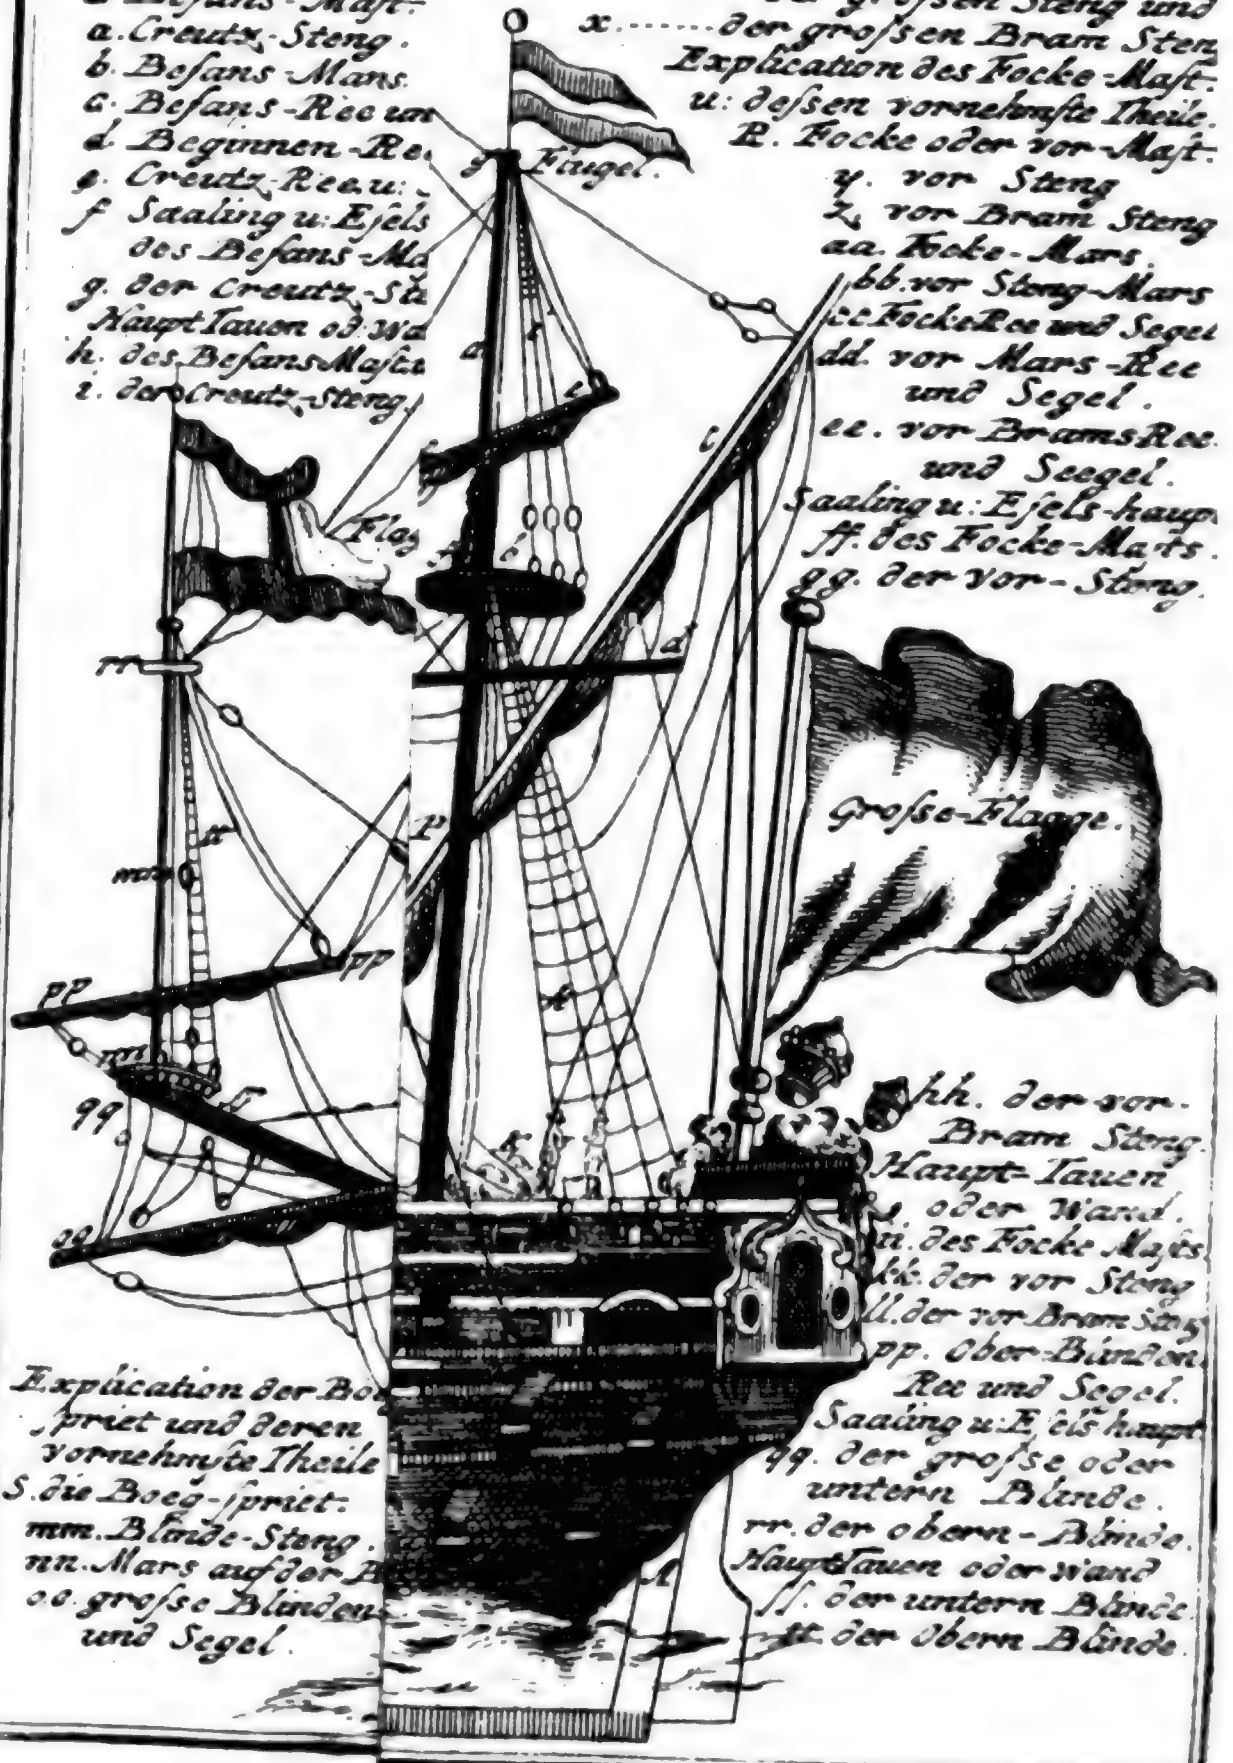 a. Creutz-Steng.
b. Besans-Mars.
c. Besans-Ree un
d. Beginnen-Re
e. Creutz-Ree. u:
f Saaling u: Esels
des Besans-Ma
g. der Creutz-Ste
Haupt Tauen od: Wa
h. des Besans-Masts
i. der Creutz-Steng.
x. der grossen Bram Sten
Explication des Focke-Mast.
u: dessen vornehmste Theile.
R. Focke oder vor-Mast.
y. vor Steng
z. vor Bram Steng
aa. Focke-Mars.
bb. vor Steng-Mars
cc. Focke Ree und Segel
dd. vor Mars-Ree
und Segel.
ee. vor Brams Ree.
und Seegel.
Saaling u: Esels-haup
ff. des Focke-Masts.
gg. der vor-Steng.
Flugel.
g
a
i
c
Flag
d
rr
tt
mm
P
pp
pp
nn
qq
oo
h
K
Grosse-Flagge.
A
hh. der vor-
Bram Steng.
Haupt-Tauen
oder Wand.
ii. des Focke Masts
kk. der vor Steng
ll. der vor Bram Steng
pp. Ober-Blinden
Ree und Segel.
Saaling u: Esels haupt
qq. der grosse oder
untern Blinde.
rr. der obern-Blinde.
Haupt Tauen oder Wand
ss. der untern Blinde
tt. der Obern Blinde.
Explication der Boe
spriet und deren
vornehmste Theile
S. die Boeg-spriet.
mm. Blinde-Steng.
nn. Mars auf der B
oo. grosse Blinden
und Segel.